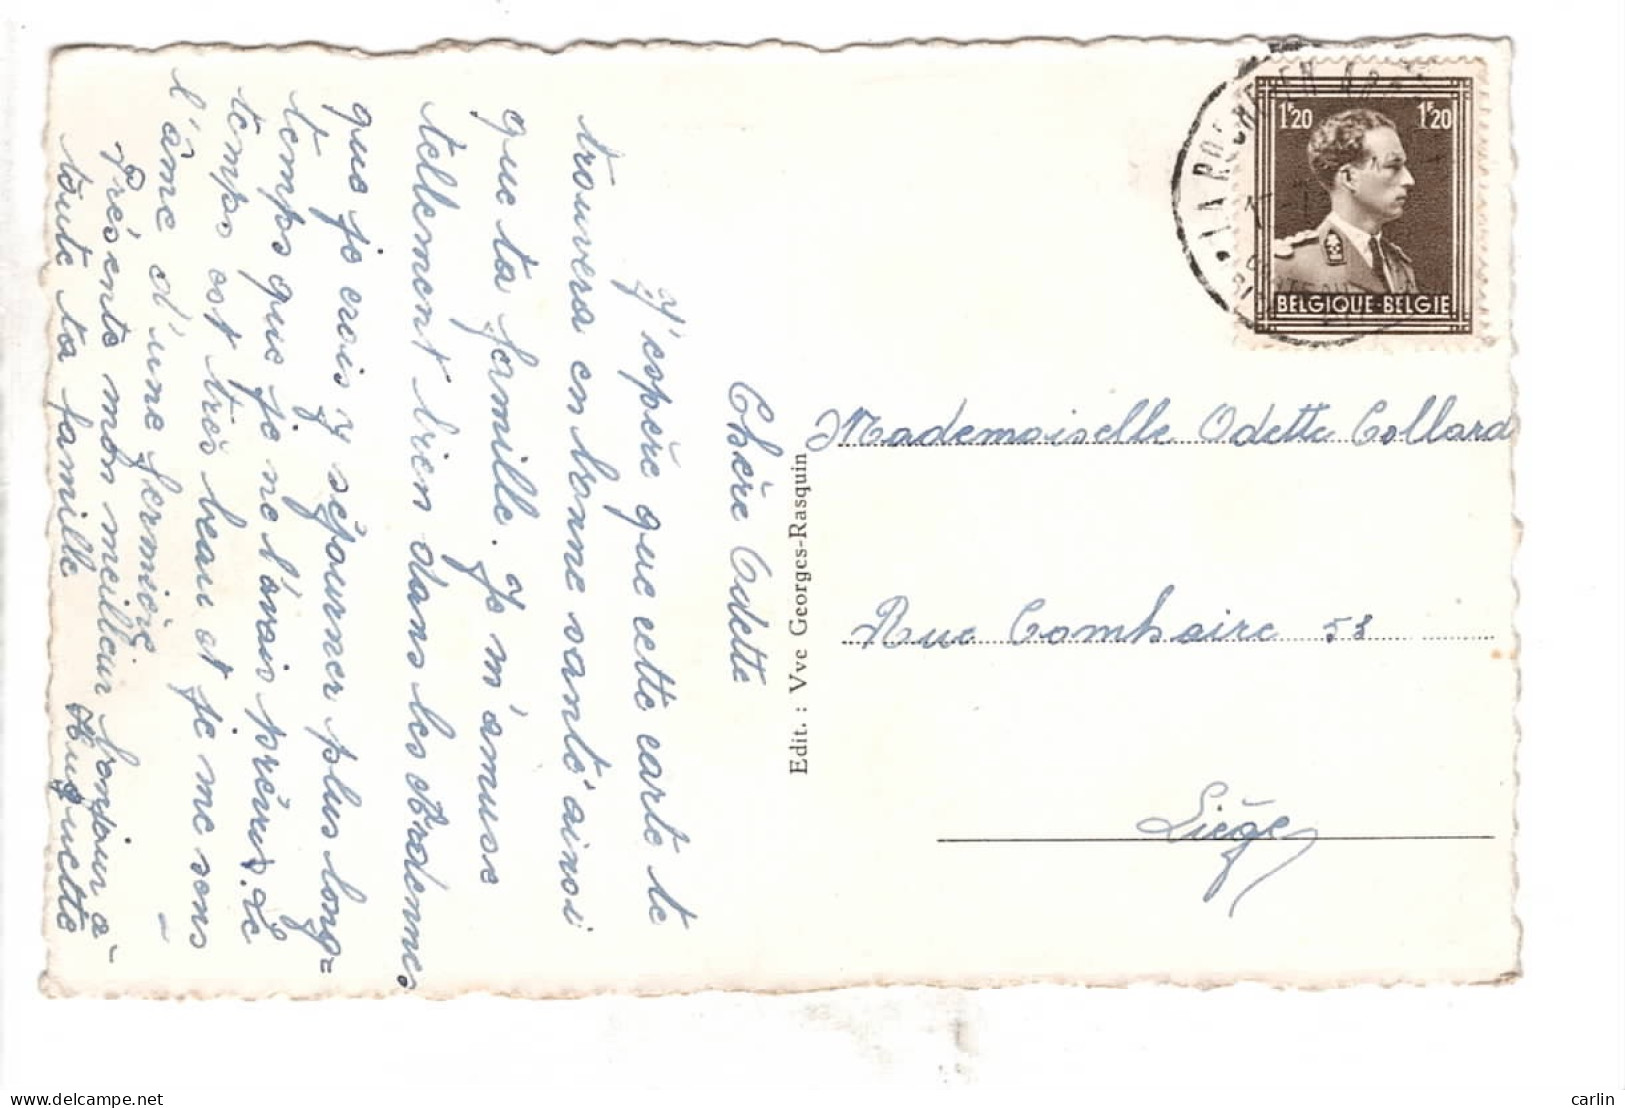 Chère Odette
J'espère que cette carte te
trouvera en bonne santé ainsi
que ta famille. Je m'amuse
tellement bien dans les Ardennes
que je crois y séjourner plus long=
temps que je ne l'avais prévu. Le
temps est très beau et je me sens
l'âme d'une fermière
Présente mon meilleur bonjour à
toute ta famille
Huguette
Edit. : Vve Georges-Rasquin
1F20 1F20
BELGIQUE-BELGIE
LA ROCHE EN ARD
Mademoiselle Odette Collard
Rue Comhaire 53
Liège
www.delcampe.net
carlin